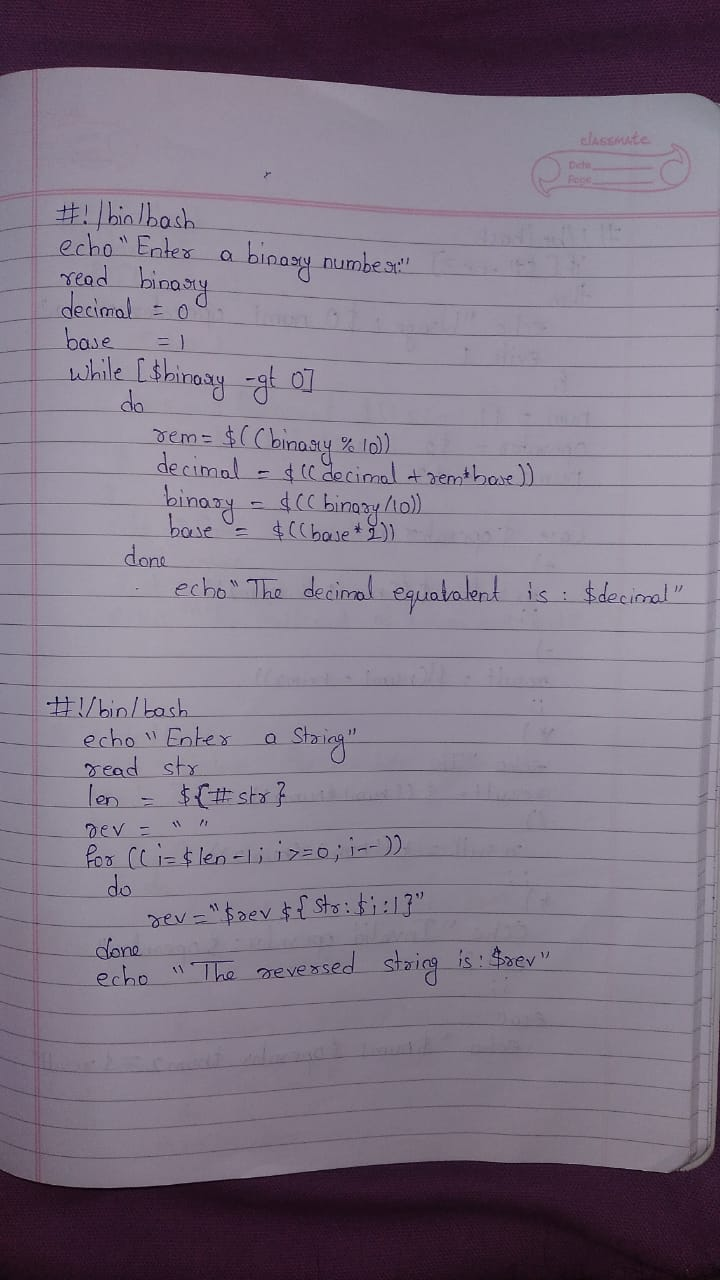 classmate
Date
Page
#!/bin/bash
echo "Enter a binary number:"
read binary
decimal = 0
base = 1
while [$binary -gt 0]
do
rem = $((binary % 10))
decimal = $((decimal + rem*base))
binary = $((binary/10))
base = $((base * 2))
done
echo "The decimal equatalent is : $decimal"
#!/bin/bash
echo "Enter a String"
read str
len = ${#str}
rev = " "
for ((i=$len-1; i>=0; i--))
do
rev = "$rev ${str:$i:1}"
done
echo "The reversed string is: $rev"